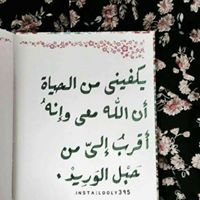 يكفيني من الحياة
أن الله معي وإنهُ
أقربُ إليّ من
حَبْل الوَرِيدْ.
INSTA|LOOLY395